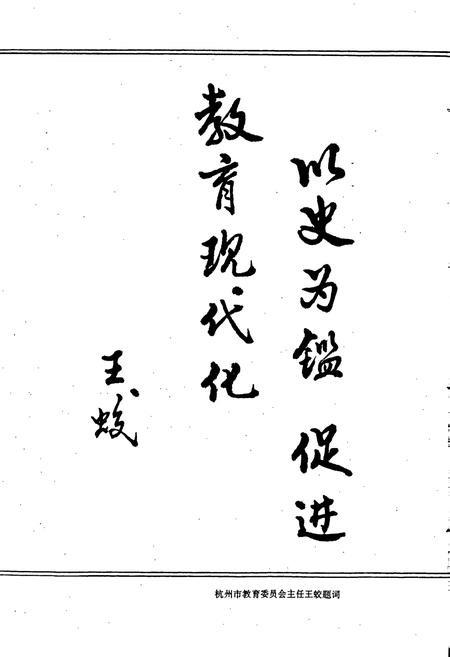 以史为鑑 促进
教育现代化
王蛟
杭州市教育委员会主任王蛟题词